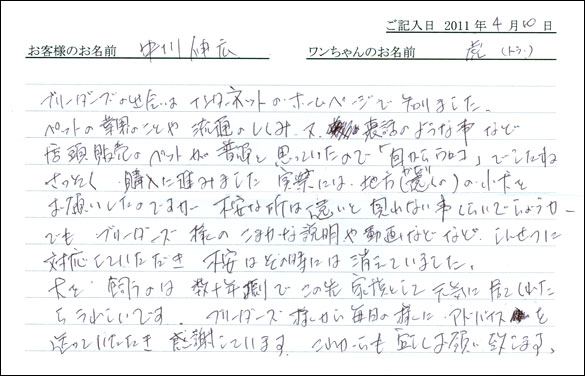 ご記入日 2011年4月10日
お客様のお名前 中川伸広 ワンちゃんのお名前 虎(トラ)
ブリーダーズの出会いはインターネットのホームページで知りました。
ペットの業界のことや流通のしくみ、又、裏話のような事など
店頭販売のペットが普通と思っていたので「目からウロコ」でしたね
さっそく購入に進みました 実際には、地方 の小犬を
お願いしたのですが 不安な所は遠いと見れない事くらいでしょうか
でも ブリーダーズ様のこまかな説明や動画などなど、しんせつに
対応していただき 不安はその時には消えていました。
犬を飼うのは数十年振りでこの先家族として元気に居てくれた
らうれしいです ブリーダーズ様から毎日の様にアドバイスを
送っていただき 感謝しています。これからも宜しくお願い致します。